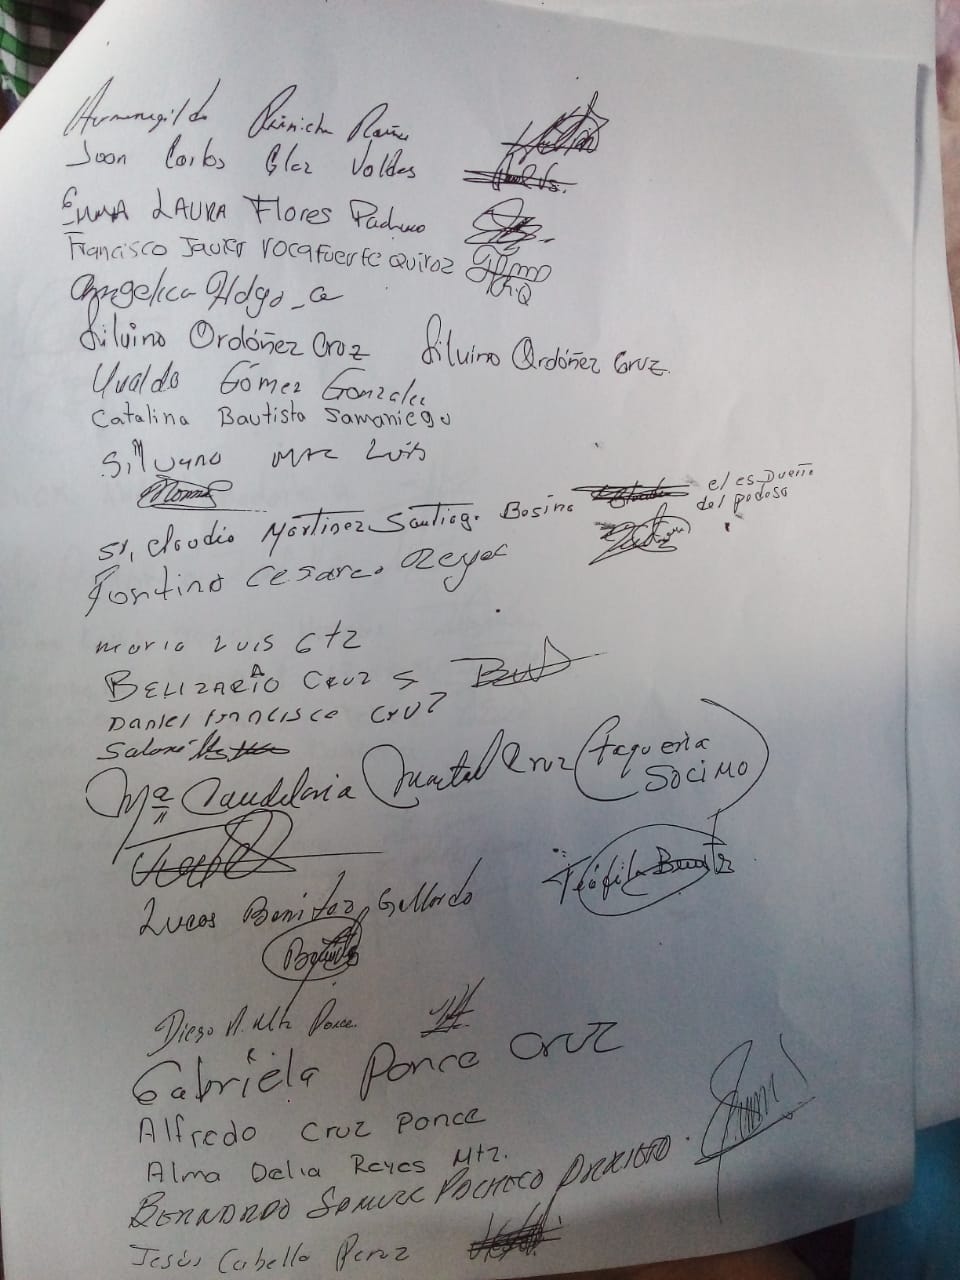 Hermenegildo
Juan Carlos Glez Valdes
Emma LAURA Flores Pacheco
Francisco Javier Rocafuerte Quiroz
R.Q
Angelica Hdgo_a
Silvino Ordóñez Cruz Silvino Ordóñez Cruz.
Uvaldo Gómez Gonzalez
Catalina Bautista Samaniego
Silvano Mtz Luis
Sr, Claudio Martinez Santiago. el es Dueño
del
Cesareo Reyes
maria Luis Gtz
BELIZARIO CRUZ S
Daniel Francisco CRUZ
Salomé
Mª Candelaria Martel Cruz (taqueria
SOCIMO)
Lucas Benitez Gallardo Teófila
Diego A. Mtz Ponce.
Gabriela Ponce Cruz
Alfredo Cruz Ponce
Alma Delia Reyes Mtz.
BERNARDO SAMUEL PACHECO
Jesús Cabello Perez